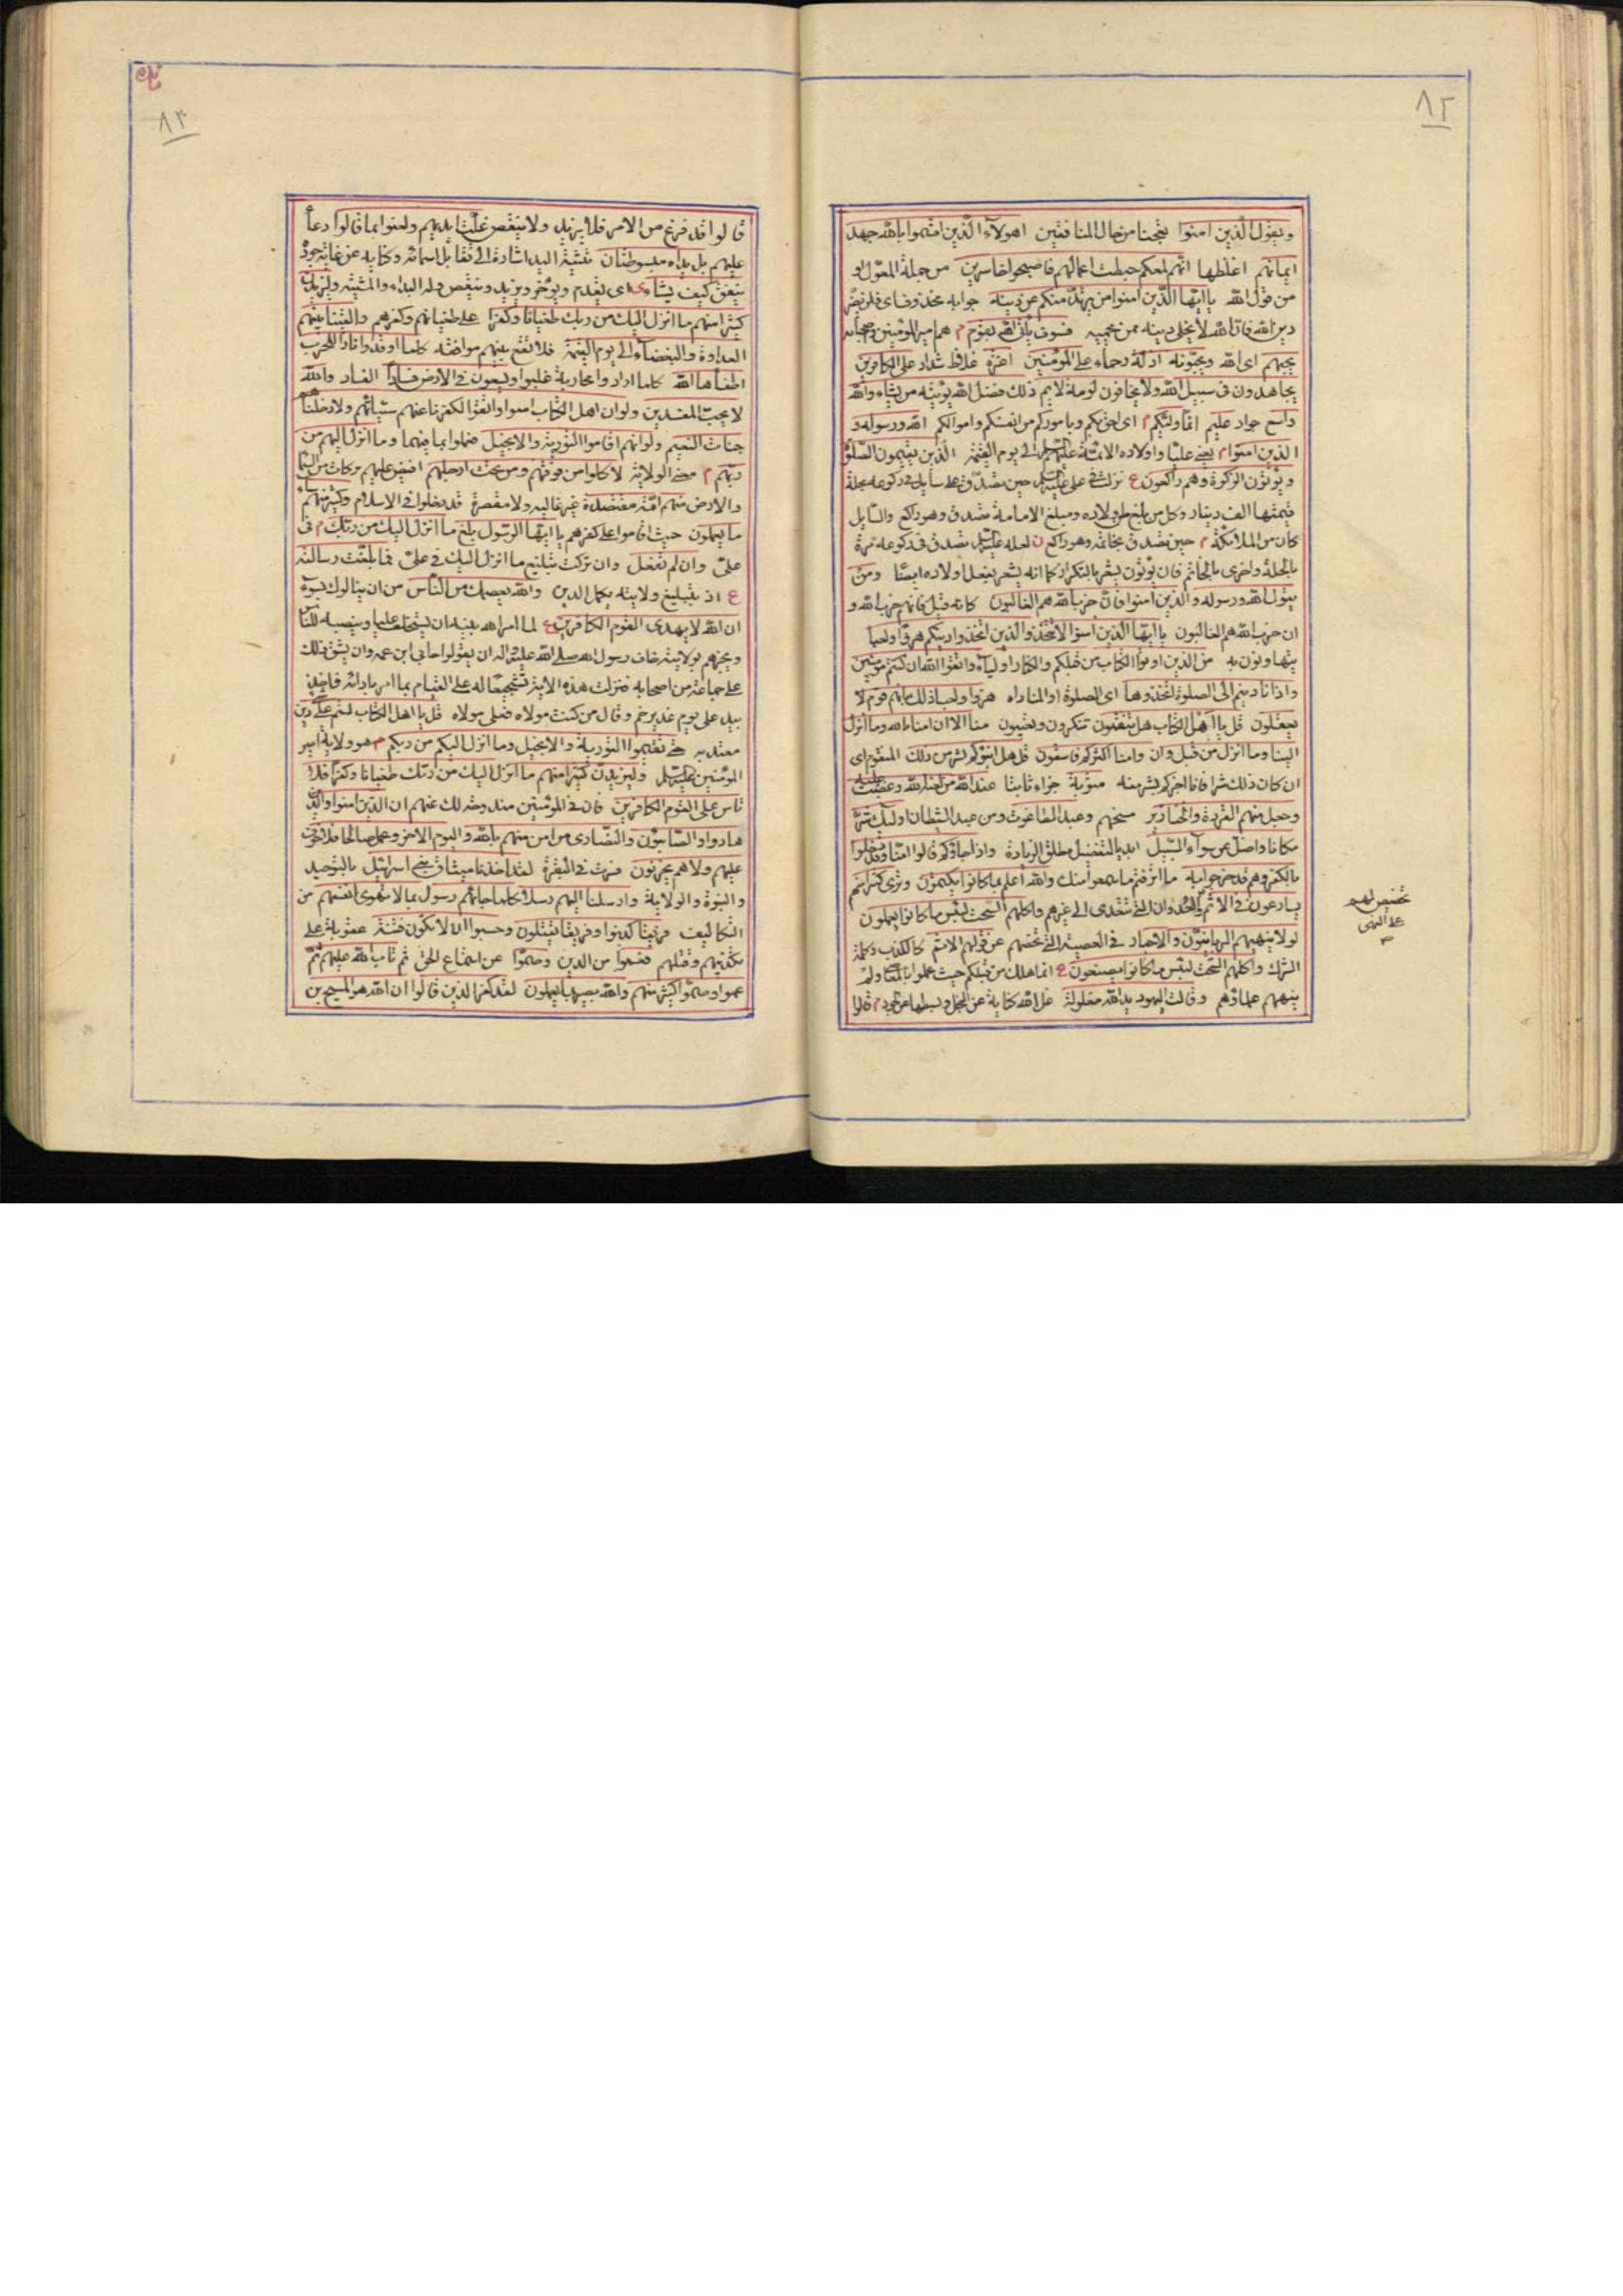 ٨٢
ويقول الذين امنوا تعجبا من حال المنافقين اهولاء الذين اقسموا بالله جهد
ايمانهم اغلظها انهم لمعكم حبطت اعمالهم فاصبحوا خاسرين من جملة المقول او
من قول الله يا ايها الذين امنوا من يرتد منكم عن دينه جوابه محذوف اى فلن يضر
دين الله فان الله لا يخلى دينه ممن يحميه فسوف ياتى الله بقوم م هم امير المومنين واصحابه
يحبهم اى الله ويحبونه اذلة رحماء على المؤمنين اعزة غلاظ شداد على الكافرين
يجاهدون فى سبيل الله ولا يخافون لومة لايم ذلك فضل الله يوتيه من يشاء والله
واسع جواد عليم انما وليكم م اى احق بكم وباموركم من انفسكم واموالكم الله ورسوله و
الذين امنوا م يعنى عليا واولاده الائمة عليهم السلام الى يوم القيمة الذين يقيمون الصلوة
ويؤتون الزكوة وهم راكعون ع نزلت فى على عليه السلام حين تصدق على سايل فى ركوعه بحلة
قيمتها الف دينار وكل من بلغ من اولاده ومبلغ الامامة تصدق وهو راكع والسايل
كان من الملائكة م حين تصدق بخاتمه وهو راكع ن لعله عليه السلام تصدق فى ركوعه مرة
بالحلة واخرى بالخاتم فان يؤتون يشعر بالتكرار كما انه يشعر بفعل اولاده ايضا ومن
يتول الله ورسوله والذين امنوا فان حزب الله هم الغالبون كانه قيل فانهم حزب الله و
ان حزب الله هم الغالبون يا ايها الذين امنوا لا تتخذوا الذين اتخذوا دينكم هزوا ولعبا
يتهاونون به من الذين اوتوا الكتاب من قبلكم والكفار اولياء واتقوا الله ان كنتم مومنين
واذا ناديتم الى الصلوة اتخذوها اى الصلوة او المناداه هزوا ولعبا ذلك بانهم قوم لا
يعقلون قل يا اهل الكتاب هل تنقمون تنكرون وتعيبون منا الا ان امنا بالله وما انزل
الينا وما انزل من قبل وان وامنا اكثركم فاسقون قل هل انبؤكم بشر من ذلك المنقوم اى
ان كان ذلك شرا فانا اخبركم بشر منه مثوبة جزاء ثابتا عند الله من لعنه الله وغضب عليه
وجعل منهم القردة والخنازير مسخهم وعبد الطاغوت ومن عبد الشيطان اولئك شر
مكانا واضل عن سواء السبيل اريد بالتفضيل مطلق الزيادة واذا جاؤكم قالوا امنا وقد دخلوا
بالكفر وهم قد خرجوا به ما اثر فيهم ما سمعوا منك والله اعلم بما كانوا يكتمون وترى كثيرا منهم
يسارعون فى الاثم والعدوان التى تتعدى الى غيرهم واكلهم السحت لبئس ما كانوا يعملون
لولا ينهيهم الربانيون والاحبار فى المعصية التى تخصهم عن قولهم الاثم كالكذب وكلمة
الشرك واكلهم السحت لبئس ما كانوا يصنعون ع انما هلك من قبلكم حيث عملوا بالمعاصى ولم
ينههم علماؤهم وقالت اليهود يد الله مغلولة غل الله كناية عن البخل وبسطها عن الجود م قالوا
تخصيص لهم
على النهى
٨٣
قالوا قد فرغ من الامر فلا يزيد ولا ينقص غلت ايديهم ولعنوا بما قالوا دعاء
عليهم بل يداه مبسوطتان تثنية اليد اشارة الى تقابل اسمائه وكناية عن غاية جود
ينفق كيف يشاء ى اى يقدم ويؤخر ويزيد وينقص وله البداء والمشية وليزيدن
كثيرا منهم ما انزل اليك من ربك طغيانا وكفرا على طغيانهم وكفرهم والقينا بينهم
العداوة والبغضاء الى يوم القيمة فلا تقع بينهم موافقة كلما اوقدوا نارا للحرب
اطفاها الله كلما ارادوا محاربة غلبوا ويسعون فى الارض فسادا الفساد والله
لا يحب المفسدين ولو ان اهل الكتاب امنوا واتقوا لكفرنا عنهم سيئاتهم ولادخلناهم
جنات النعيم ولو انهم اقاموا التورية والانجيل عملوا بما فيهما وما انزل اليهم من
ربهم م يعنى الولاية لاكلوا من فوقهم ومن تحت ارجلهم افيض عليهم بركات من السماء
والارض منهم امة مقتصدة غير غالية ولا مقصرة قد دخلوا فى الاسلام وكثير منهم ساء
ما يعملون حيث اقاموا على كفرهم يا ايها الرسول بلغ ما انزل اليك من ربك م فى
على وان لم تفعل وان تركت تبليغ ما انزل اليك فى على فما بلغت رسالته
ع اذ بتبليغ ولايته يكمل الدين والله يعصمك من الناس من ان ينالوك بسوء
ان الله لا يهدى القوم الكافرين ع لما امر الله نبيه ان يستخلف عليا وينصبه للناس
ويخبرهم بولايته خاف رسول الله صلى الله عليه واله ان يقولوا حابى ابن عمه وان يشق ذلك
على جماعة من اصحابه فنزلت هذه الاية تشجيعا له على القيام بما امر بادائه فاخذ
بيد على يوم غدير خم وقال من كنت مولاه فعلى مولاه قل يا اهل الكتاب لستم على دين
معتد به حتى تقيموا التورية والانجيل وما انزل اليكم من ربكم م هو ولاية امير
المؤمنين عليه السلام وليزيدن كثيرا منهم ما انزل اليك من ربك طغيانا وكفرا فلا
تاس على القوم الكافرين فان فى المؤمنين مندوحة لك عنهم ان الذين امنوا والذين
هادوا والصابئون والنصارى من امن منهم بالله واليوم الاخر وعمل صالحا فلا خوف
عليهم ولا هم يحزنون فسرت فى البقرة لقد اخذنا ميثاق بنى اسرائيل بالتوحيد
والنبوة والولاية وارسلنا اليهم رسلا كلما جاءهم رسول بما لا تهوى انفسهم من
التكاليف فريقا كذبوا وفريقا يقتلون وحسبوا ان لا تكون فتنة عقوبة على
تكذيبهم وقتلهم فعموا عن الدين وصموا عن استماع الحق ثم تاب الله عليهم ثم
عموا وصموا كثير منهم والله بصير بما يعملون لقد كفر الذين قالوا ان الله هو المسيح بن